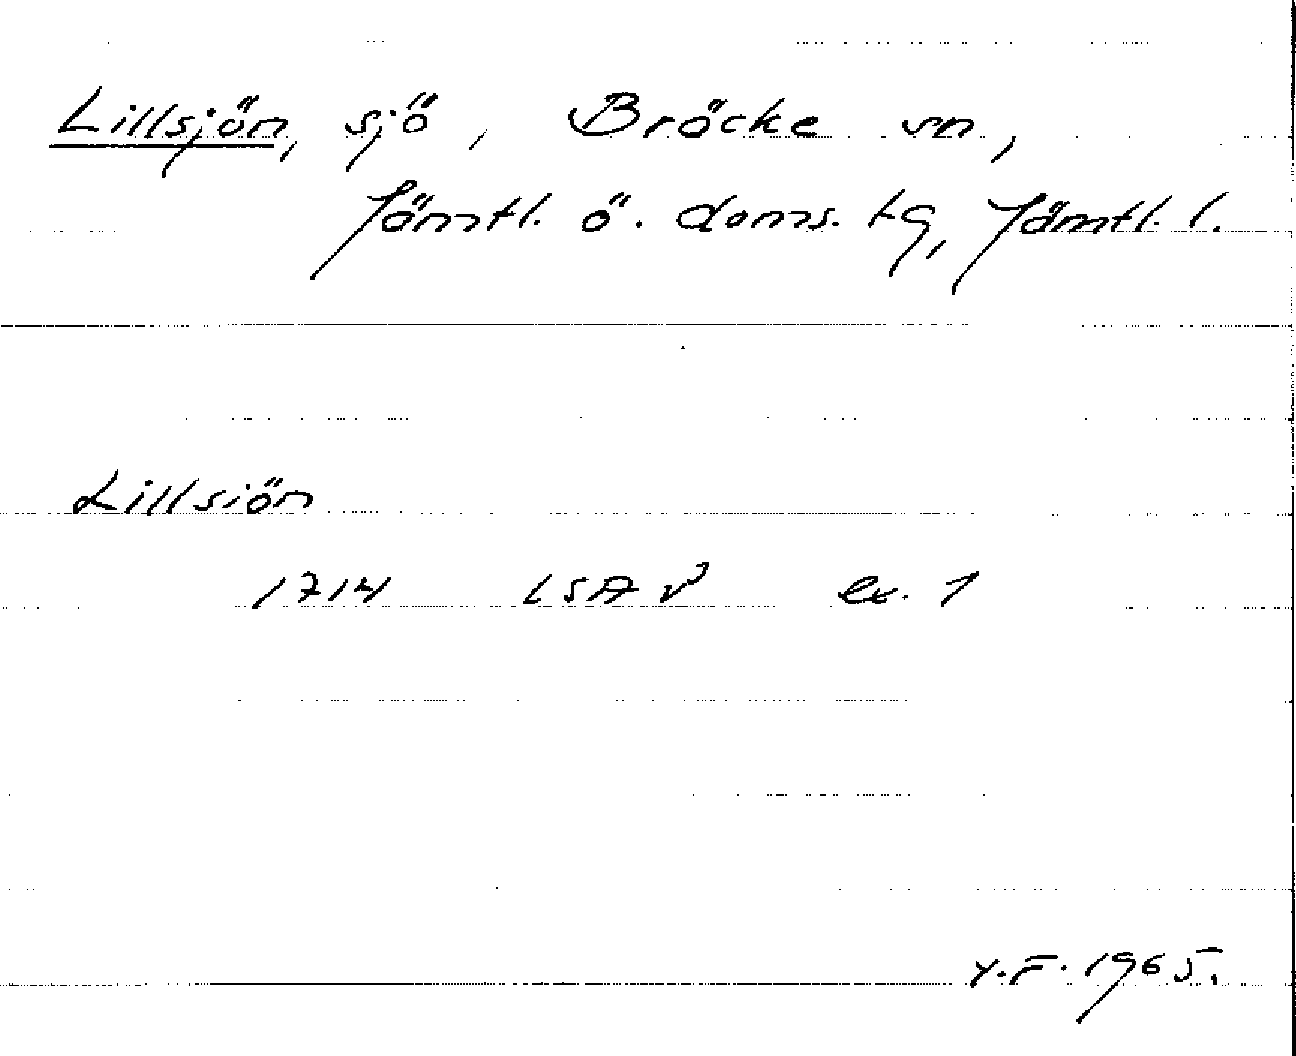 Lillsjön, sjö, Bräcke sn,
Jämtl. ö. doms. tg, Jämtl. l.
Lillsiön
1714 LSA v³ ex. 1
Y.F. 1965.